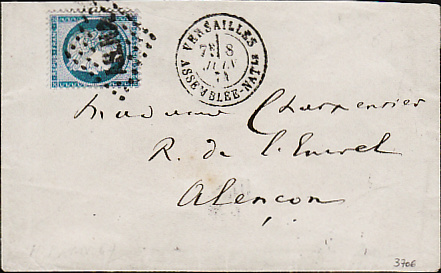 VERSAILLES
7E 8
JUIL
71
ASSEMBLÉE-NATLE
Madame Charpentier
R. de l'
Alençon
370€